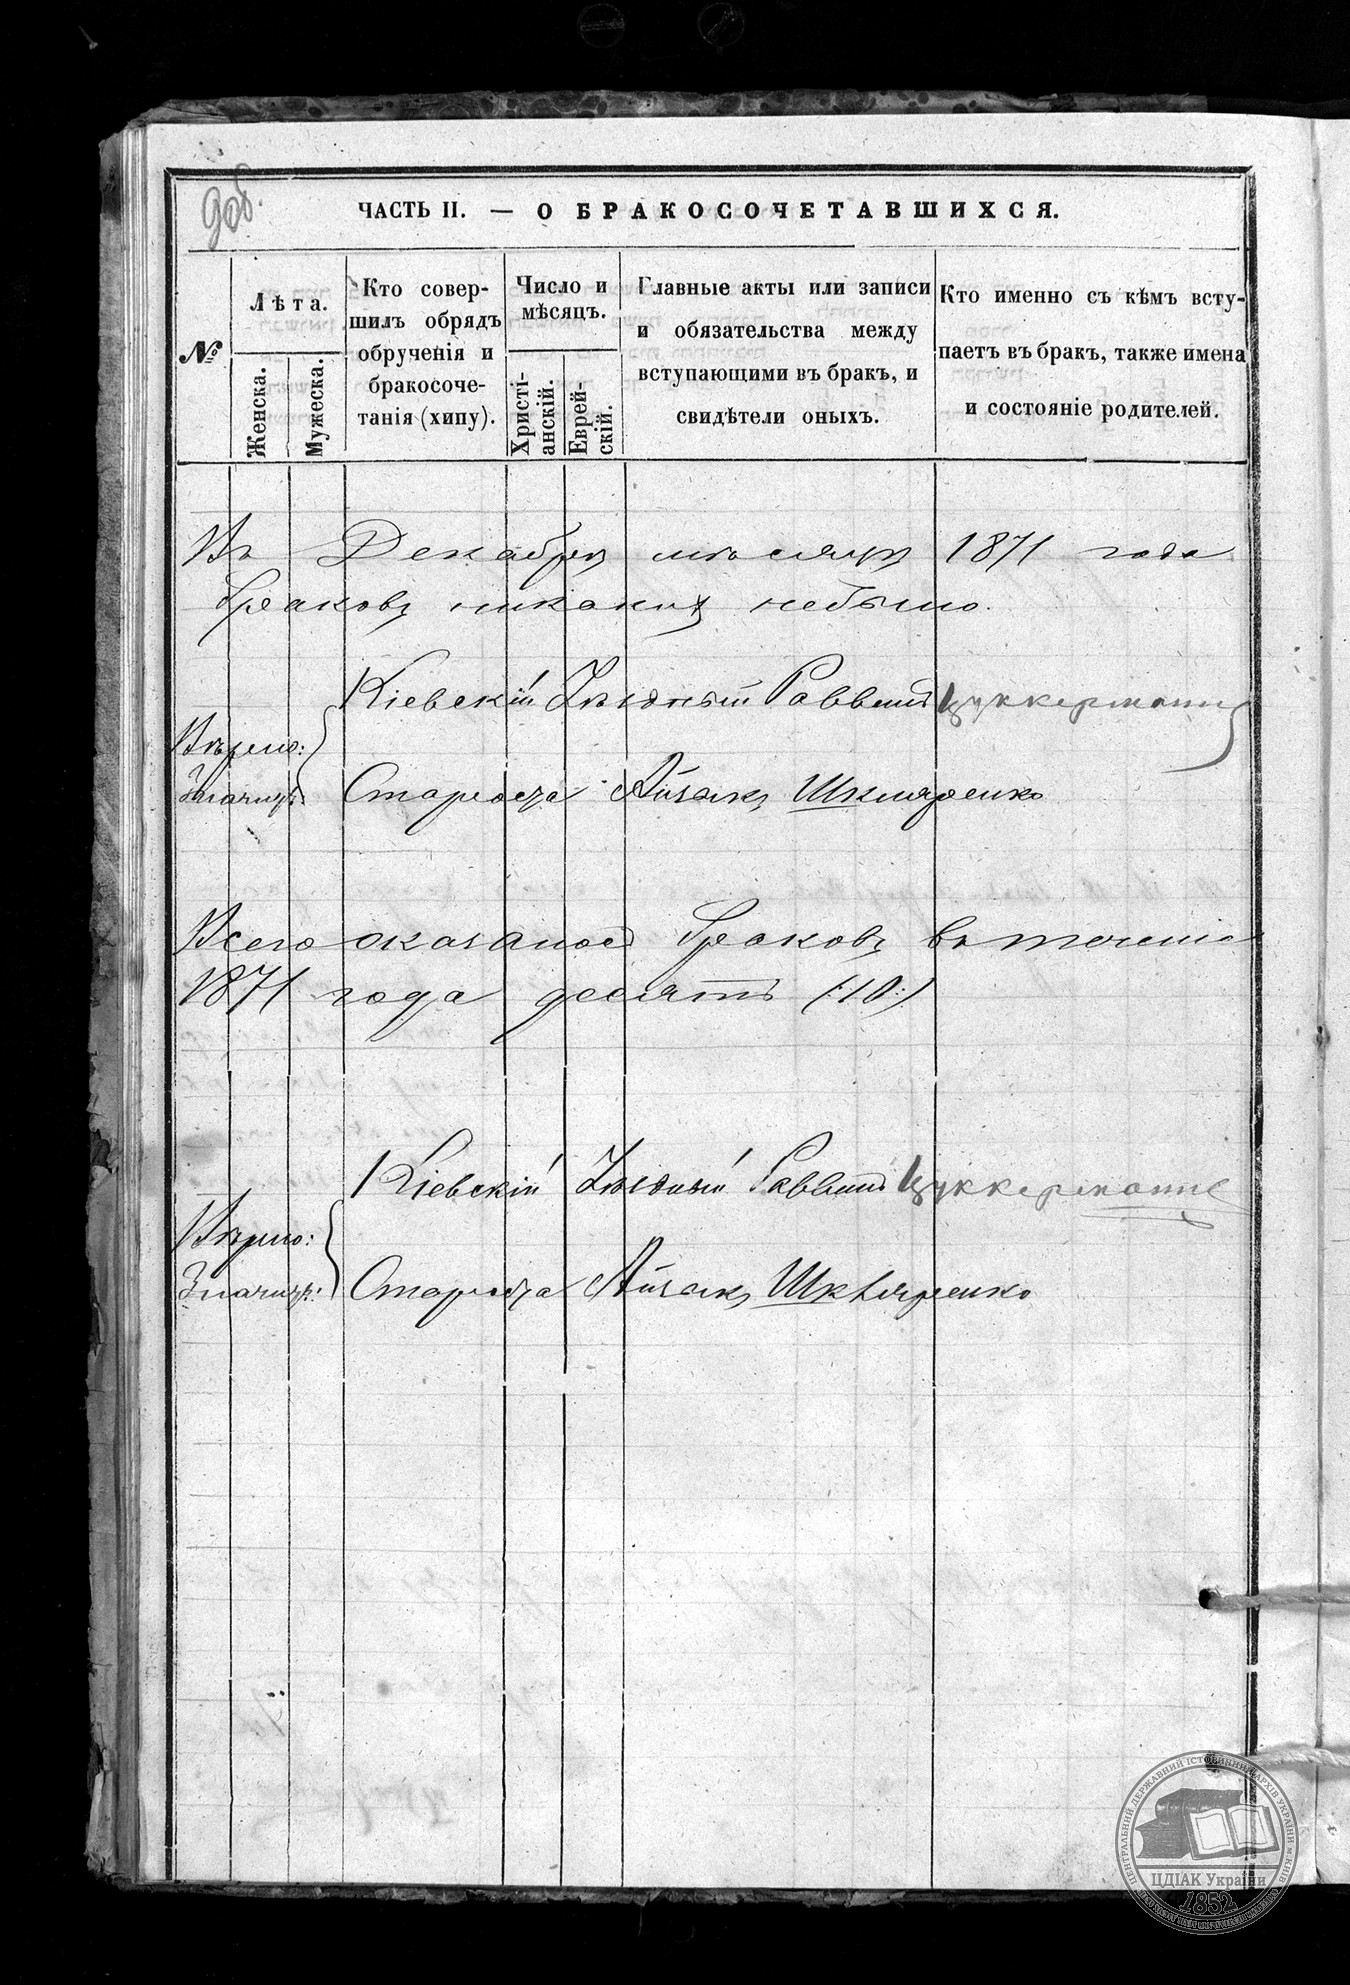 9об.
ЧАСТЬ II. — О БРАКОСОЧЕТАВШИХСЯ.
№
Лѣта.
Женска.
Мужеска.
Кто совер-
шилъ обрядъ
обрученія и
бракосоче-
танія (хипу).
Число и
мѣсяцъ.
Христі-
анскій.
Еврей-
скій.
Главные акты или записи
и обязательства между
вступающими въ бракъ, и
свидѣтели оныхъ.
Кто именно съ кѣмъ всту-
паетъ въ бракъ, также имена
и состояніе родителей.
Въ Декабрѣ мѣсяцѣ 1871 года
браковъ никакихъ небыло.
Кіевскій Уѣздный Раввинъ Цуккерманъ
Вѣрно:
Значитъ: Староста Айзикъ Шкляренко
Всего оказалось браковъ въ теченіе
1871 года десять (:10:)
Кіевскій Уѣздный Раввинъ Цуккерманъ
Вѣрно:
Значитъ: Староста Айзикъ Шкляренко
ЦЕНТРАЛЬНИЙ ДЕРЖАВНИЙ ІСТОРИЧНИЙ АРХІВ УКРАЇНИ м. КИЇВ
ЦДІАК України
1852